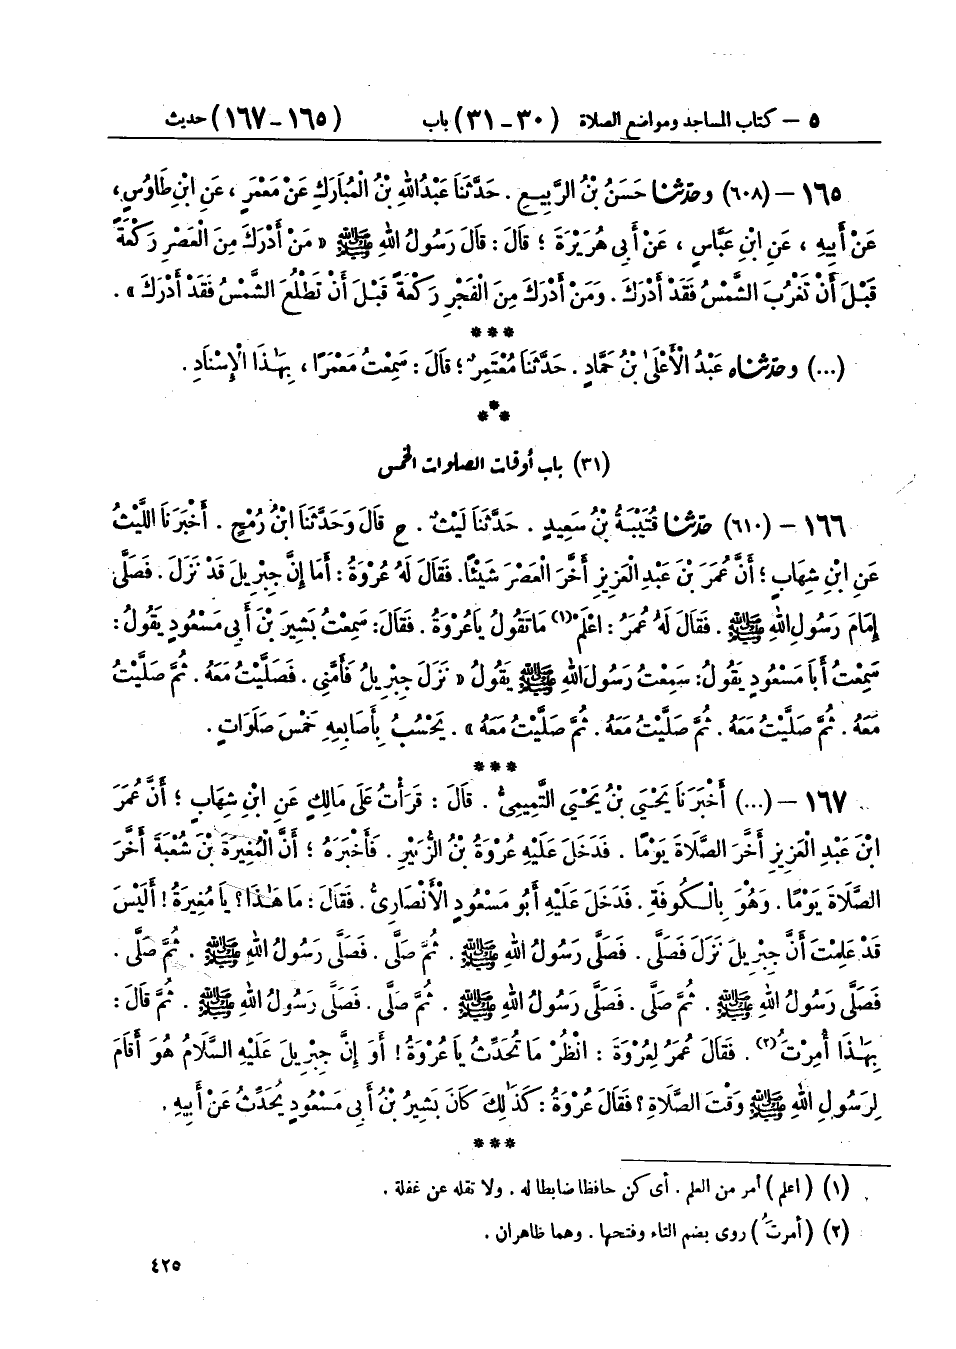 ٥ – كتاب المساجد ومواضع الصلاة (٣٠ – ٣١) باب (١٦٥ – ١٦٧) حديث
١٦٥ – (٦٠٨) وحدثنا حَسَنُ بْنُ الرَّبِيعِ . حَدَّثَنَا عَبْدُ اللهِ بْنُ الْمُبَارَكِ عَنْ مَعْمَرٍ ، عَنِ ابْنِ طَاوُسٍ ،
عَنْ أَبِيهِ ، عَنِ ابْنِ عَبَّاسٍ ، عَنْ أَبِي هُرَيْرَةَ ؛ قَالَ : قَالَ رَسُولُ اللهِ ﷺ « مَنْ أَدْرَكَ مِنَ الْعَصْرِ رَكْعَةً
قَبْلَ أَنْ تَغْرُبَ الشَّمْسُ فَقَدْ أَدْرَكَ . وَمَنْ أَدْرَكَ مِنَ الْفَجْرِ رَكْعَةً قَبْلَ أَنْ تَطْلُعَ الشَّمْسُ فَقَدْ أَدْرَكَ » .
***
(...) وحدثناه عَبْدُ الْأَعْلَى بْنُ حَمَّادٍ . حَدَّثَنَا مُعْتَمِرٌ ؛ قَالَ : سَمِعْتُ مَعْمَرًا ، بِهَٰذَا الْإِسْنَادِ .
***
(٣١) باب أوقات الصلوات الخمس
١٦٦ – (٦١٠) حدثنا قُتَيْبَةُ بْنُ سَعِيدٍ . حَدَّثَنَا لَيْثٌ . ح قَالَ وَحَدَّثَنَا ابْنُ رُمْحٍ . أَخْبَرَنَا اللَّيْثُ
عَنِ ابْنِ شِهَابٍ ؛ أَنَّ عُمَرَ بْنَ عَبْدِ الْعَزِيزِ أَخَّرَ الْعَصْرَ شَيْئًا. فَقَالَ لَهُ عُرْوَةُ : أَمَا إِنَّ جِبْرِيلَ قَدْ نَزَلَ . فَصَلَّى
إِمَامَ رَسُولِ اللهِ ﷺ . فَقَالَ لَهُ عُمَرُ : اعْلَمْ(١) مَا تَقُولُ يَا عُرْوَةُ . فَقَالَ: سَمِعْتُ بَشِيرَ بْنَ أَبِي مَسْعُودٍ يَقُولُ :
سَمِعْتُ أَبَا مَسْعُودٍ يَقُولُ: سَمِعْتُ رَسُولَ اللهِ ﷺ يَقُولُ « نَزَلَ جِبْرِيلُ فَأَمَّنِي . فَصَلَّيْتُ مَعَهُ . ثُمَّ صَلَّيْتُ
مَعَهُ . ثُمَّ صَلَّيْتُ مَعَهُ . ثُمَّ صَلَّيْتُ مَعَهُ. ثُمَّ صَلَّيْتُ مَعَهُ » . يَحْسُبُ بِأَصَابِعِهِ خَمْسَ صَلَوَاتٍ .
***
١٦٧ – (...) أَخْبَرَنَا يَحْيَى بْنُ يَحْيَى التَّمِيمِيُّ . قَالَ : قَرَأْتُ عَلَى مَالِكٍ عَنِ ابْنِ شِهَابٍ ؛ أَنَّ عُمَرَ
ابْنَ عَبْدِ الْعَزِيزِ أَخَّرَ الصَّلَاةَ يَوْمًا . فَدَخَلَ عَلَيْهِ عُرْوَةُ بْنُ الزُّبَيْرِ . فَأَخْبَرَهُ ؛ أَنَّ الْمُغِيرَةَ بْنَ شُعْبَةَ أَخَّرَ
الصَّلَاةَ يَوْمًا . وَهُوَ بِالْكُوفَةِ . فَدَخَلَ عَلَيْهِ أَبُو مَسْعُودٍ الْأَنْصَارِيُّ . فَقَالَ : مَا هَٰذَا ؟ يَا مُغِيرَةُ ! أَلَيْسَ
قَدْ عَلِمْتَ أَنَّ جِبْرِيلَ نَزَلَ فَصَلَّى . فَصَلَّى رَسُولُ اللهِ ﷺ . ثُمَّ صَلَّى . فَصَلَّى رَسُولُ اللهِ ﷺ . ثُمَّ صَلَّى .
فَصَلَّى رَسُولُ اللهِ ﷺ . ثُمَّ صَلَّى . فَصَلَّى رَسُولُ اللهِ ﷺ . ثُمَّ صَلَّى . فَصَلَّى رَسُولُ اللهِ ﷺ . ثُمَّ قَالَ :
بِهَٰذَا أُمِرْتُ(٢) . فَقَالَ عُمَرُ لِعُرْوَةَ : انْظُرْ مَا تُحَدِّثُ يَا عُرْوَةُ ! أَوَ إِنَّ جِبْرِيلَ عَلَيْهِ السَّلَامُ هُوَ أَقَامَ
لِرَسُولِ اللهِ ﷺ وَقْتَ الصَّلَاةِ ؟ فَقَالَ عُرْوَةُ : كَذَٰلِكَ كَانَ بَشِيرُ بْنُ أَبِي مَسْعُودٍ يُحَدِّثُ عَنْ أَبِيهِ .
***
(١) (اعلم) أمر من العلم . أى كن حافظا ضابطا له . ولا تقله عن غفلة .
(٢) (أمرتَُ) روى بضم التاء وفتحها . وهما ظاهران .
٤٢٥